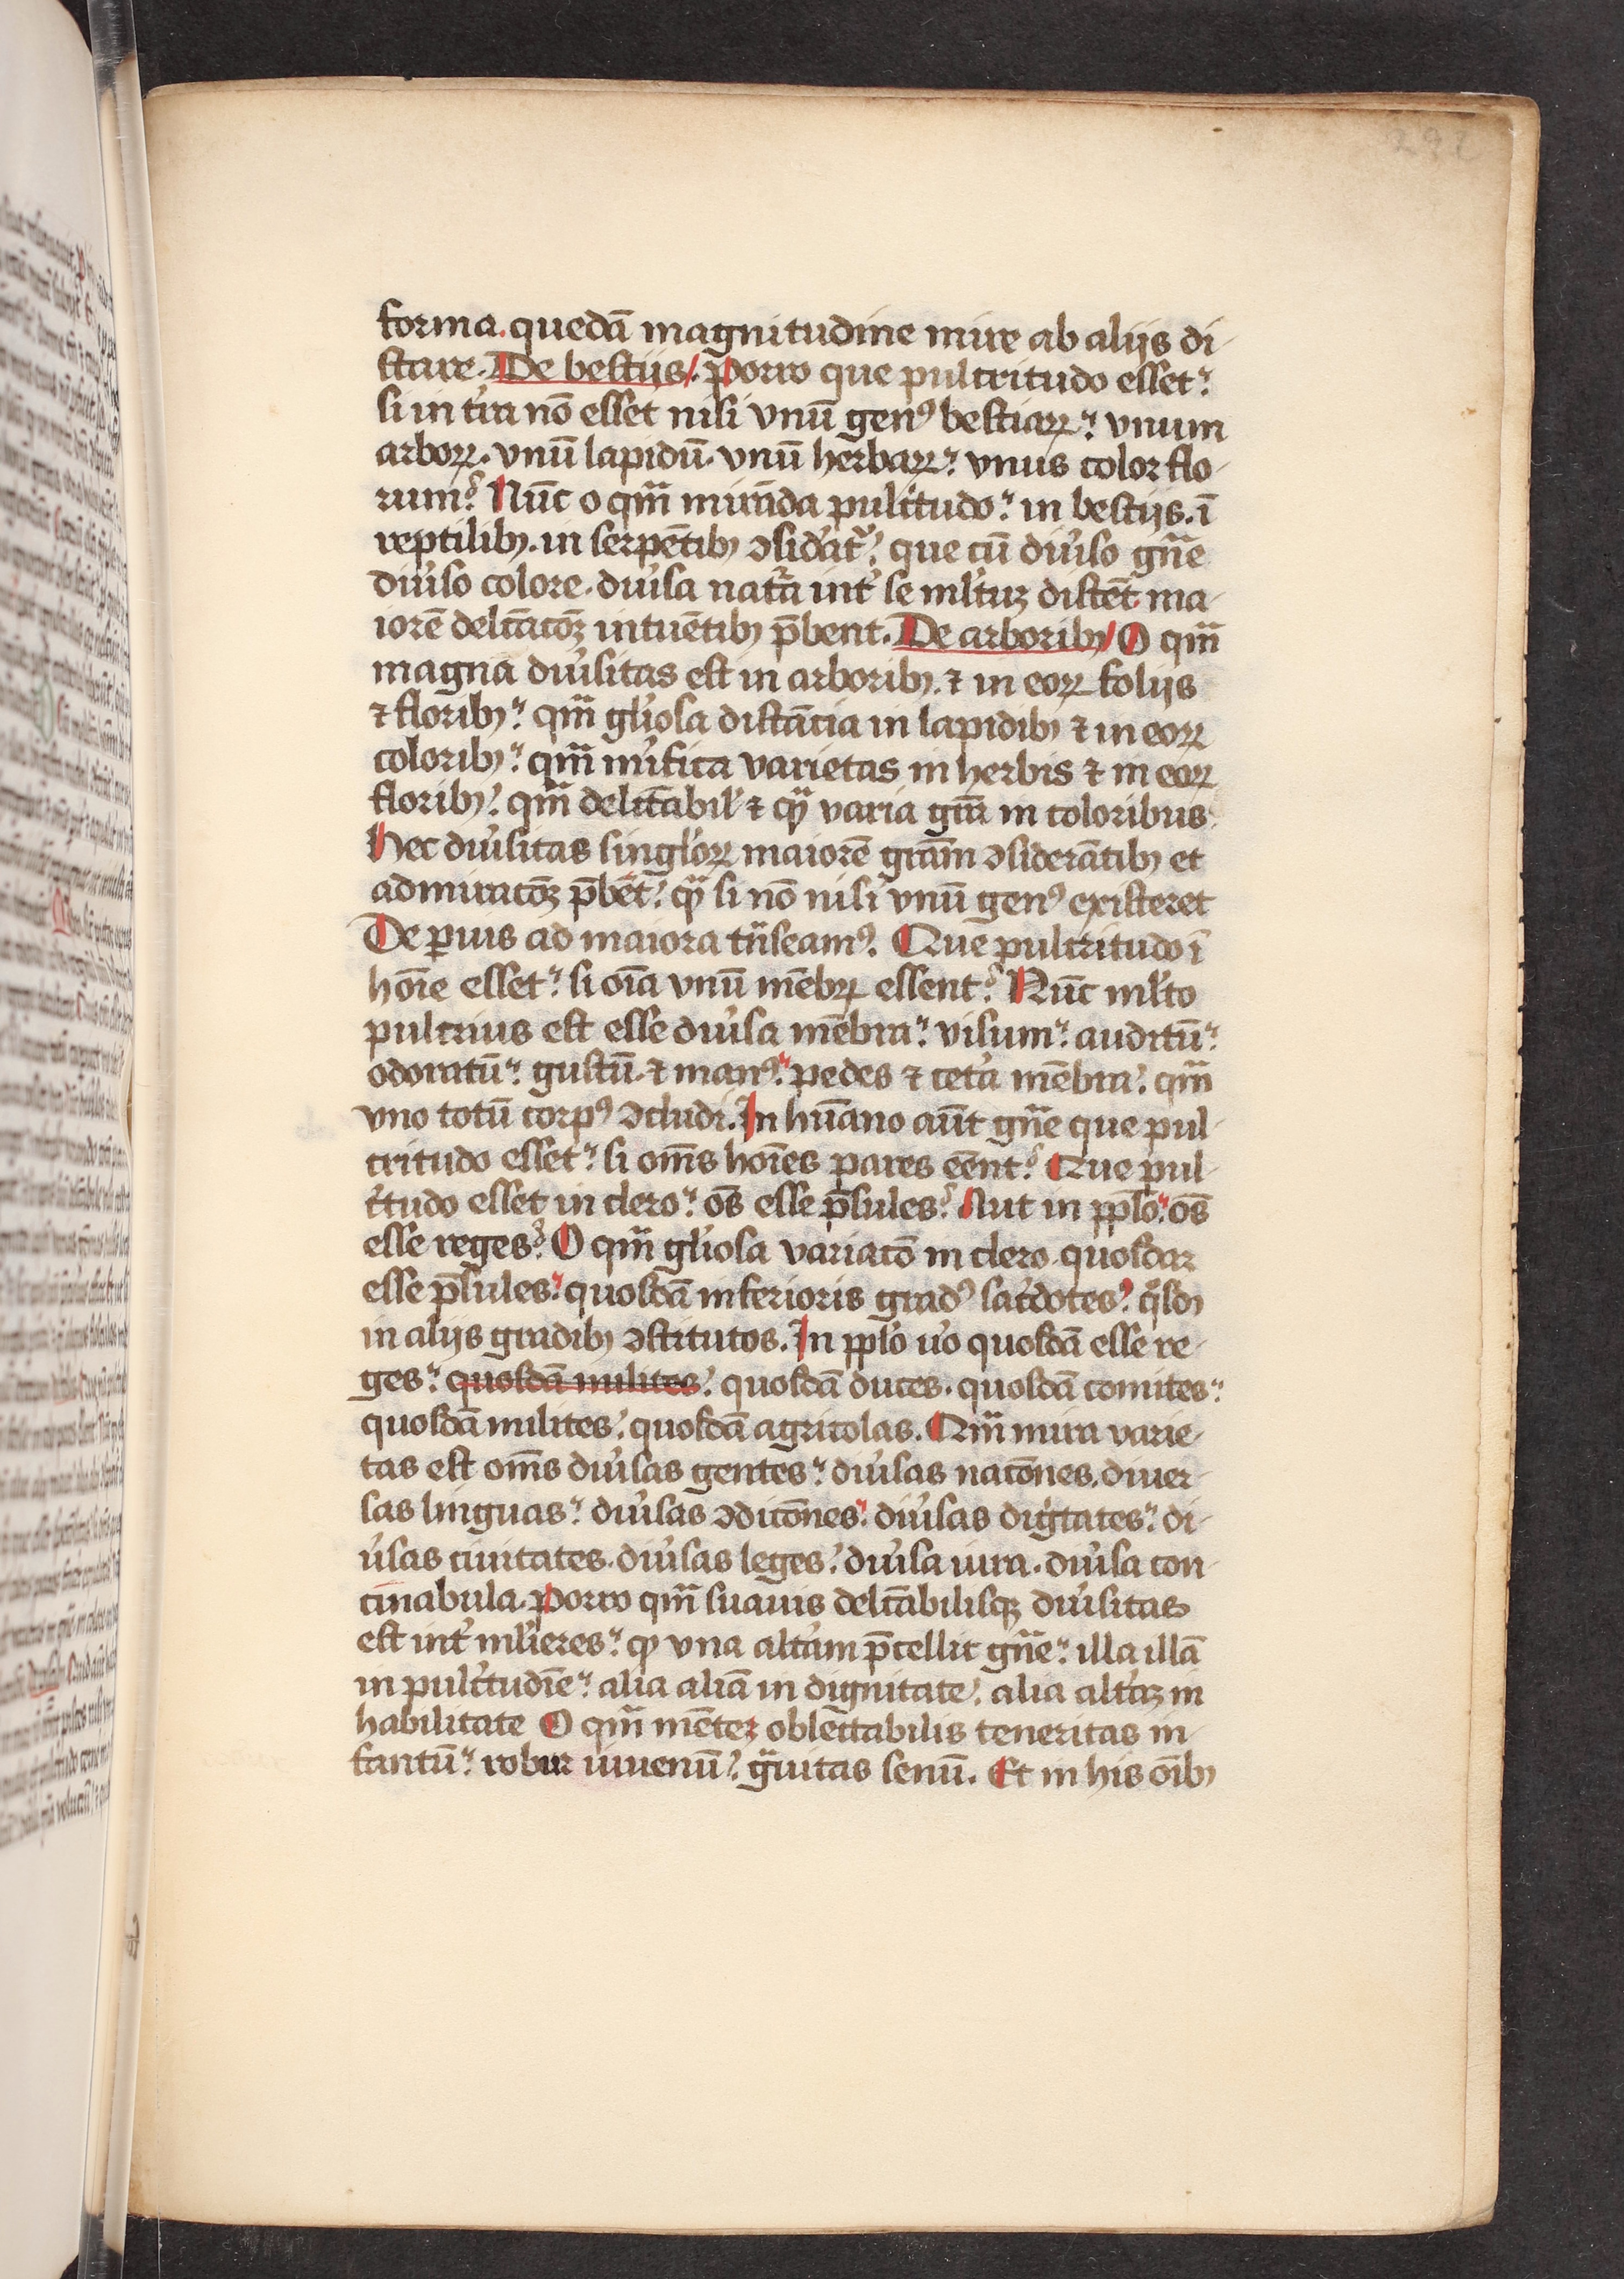 forma. quedā magnitudine mire ab alijs di-
stare. De bestijs. Porro que pulcritudo esset?
si in t'ra nō esset nisi vnū genꝰ bestiaꝝ? vnum
arboꝝ. vnū lapidū. vnū herbaꝝ? vnus color flo-
rum? Nūc o qm̄ mirāda pulc'tudo? in bestijs. ī
reptilibꝫ. in serpētibꝫ ꝯsid'atᷣ? que cū diu'so gn̄e
diu'so colore. diu'sa nat'a int' se ml'tuꝫ distēt ma-
iorē delc̄atōꝫ intuētibꝫ p̄bent. De arboribꝫ O qm̄
magna diu'sitas est in arboribꝫ. ⁊ in eoꝝ folijs
⁊ floribꝫ? qm̄ gl'iosa distācia in lapidibꝫ ⁊ in eoꝝ
coloribꝫ? qm̄ mi'fica varietas in herbis ⁊ in eoꝝ
floribꝫ? qm̄ delc̄tabil' ⁊ qꝫ varia grā in coloribus.
Hec diu'sitas singl'oꝝ maiorē grām ꝯsiderātibꝫ et
admiratōꝫ p̄bēt? qꝫ si nō nisi vnū genꝰ existeret
De ꝑuis ad maiora tn̄seamꝰ. Que pulcritudo ī
hoīe esset? si oīa vnū mēbꝝ essent? Nūc ml'to
pulcrius est esse diu'sa mēbra? visum? auditū?
odoratū? gustū. ⁊ manꝰ? pedes ⁊ cet'a mēbra? qm̄
vno totū corpꝰ ꝯcludi. In hūano aūt gn̄e que pul-
critudo esset? si om̄s hoīes pares eēnt? Que pul-
c'tudo esset in clero? oēs esse p̄sules? Aut in ppl'o? oēs
esse reges? O qm̄ gl'iosa variatō in clero. quosdaꝫ
esse p̄sules? quosdā inferioris gradꝰ sac'dotes? q̊sdꝫ
in alijs gradibꝫ ꝯstitutos. In ppl'o u'o quosdā esse re-
ges? quosdā milites? quosdā duces. quosdā comites?
quosdā milites? quosdā agricolas. Qm̄ mira varie-
tas est om̄s diu'sas gentes? diu'sas natōnes. diuer-
sas linguas? diu'sas ꝯditōnes? diu'sas dig'tates? di-
u'sas ciuitates. diu'sas leges? diu'sa iura. diu'sa con-
cinabula. Porro qm̄ suauis delc̄abilisqꝫ diu'sitas
est int' ml'ieres? qꝫ vna alt'am p̄cellit gn̄e? illa illā
in pulc'tudīe? alia aliā in dignitate? alia alt'aꝫ in
habilitate O qm̄ mēteꝫ oblēctabilis teneritas in-
fantū? robur iuuenū? gͣuitas senū. Et in his oībꝫ